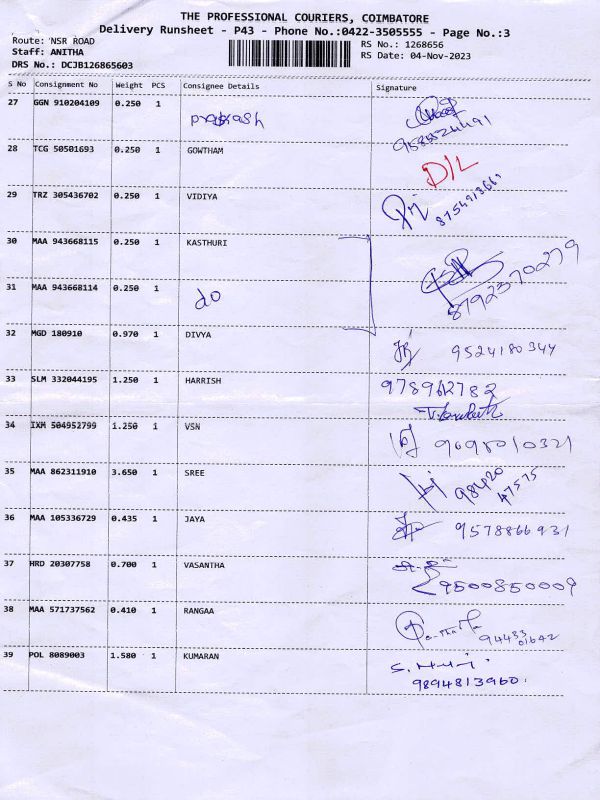 THE PROFESSIONAL COURIERS, COIMBATORE
Delivery Runsheet - P43 - Phone No.:0422-3505555 - Page No.:3
Route: NSR ROAD
Staff: ANITHA
DRS No.: DCJB126865603
RS No.: 1268656
RS Date: 04-Nov-2023
S No Consignment No Weight PCS Consignee Details Signature
27 GGN 910204109 0.250 1 prakash
28 TCG 50501693 0.250 1 GOWTHAM D/L
29 TRZ 305436702 0.250 1 VIDIYA
30 MAA 943668115 0.250 1 KASTHURI
31 MAA 943668114 0.250 1 do 8792370279
32 MGD 180910 0.970 1 DIVYA 9524180344
33 SLM 332044195 1.250 1 HARRISH 978962782
34 IXM 504952799 1.250 1 VSN
35 MAA 862311910 3.650 1 SREE 98420
47575
36 MAA 105336729 0.435 1 JAYA 9578866931
37 HRD 20307758 0.700 1 VASANTHA 9500850009
38 MAA 571737562 0.410 1 RANGAA 94433
01642
39 POL 8089003 1.580 1 KUMARAN
9894813960.